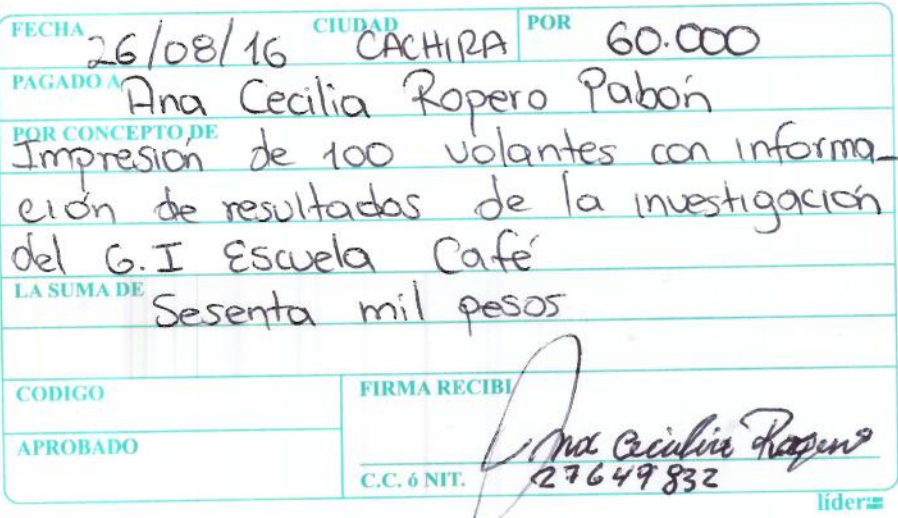 FECHA 26/08/16 CIUDAD CACHIRA POR 60.000
PAGADO A Ana Cecilia Ropero Pabón
POR CONCEPTO DE
Impresión de 100 volantes con informa-
ción de resultados de la investigación
del G.I Escuela Café
LA SUMA DE Sesenta mil pesos
CODIGO
FIRMA RECIBI
APROBADO
Ana Cecilia Ropero
C.C. ó NIT. 27649832
líder